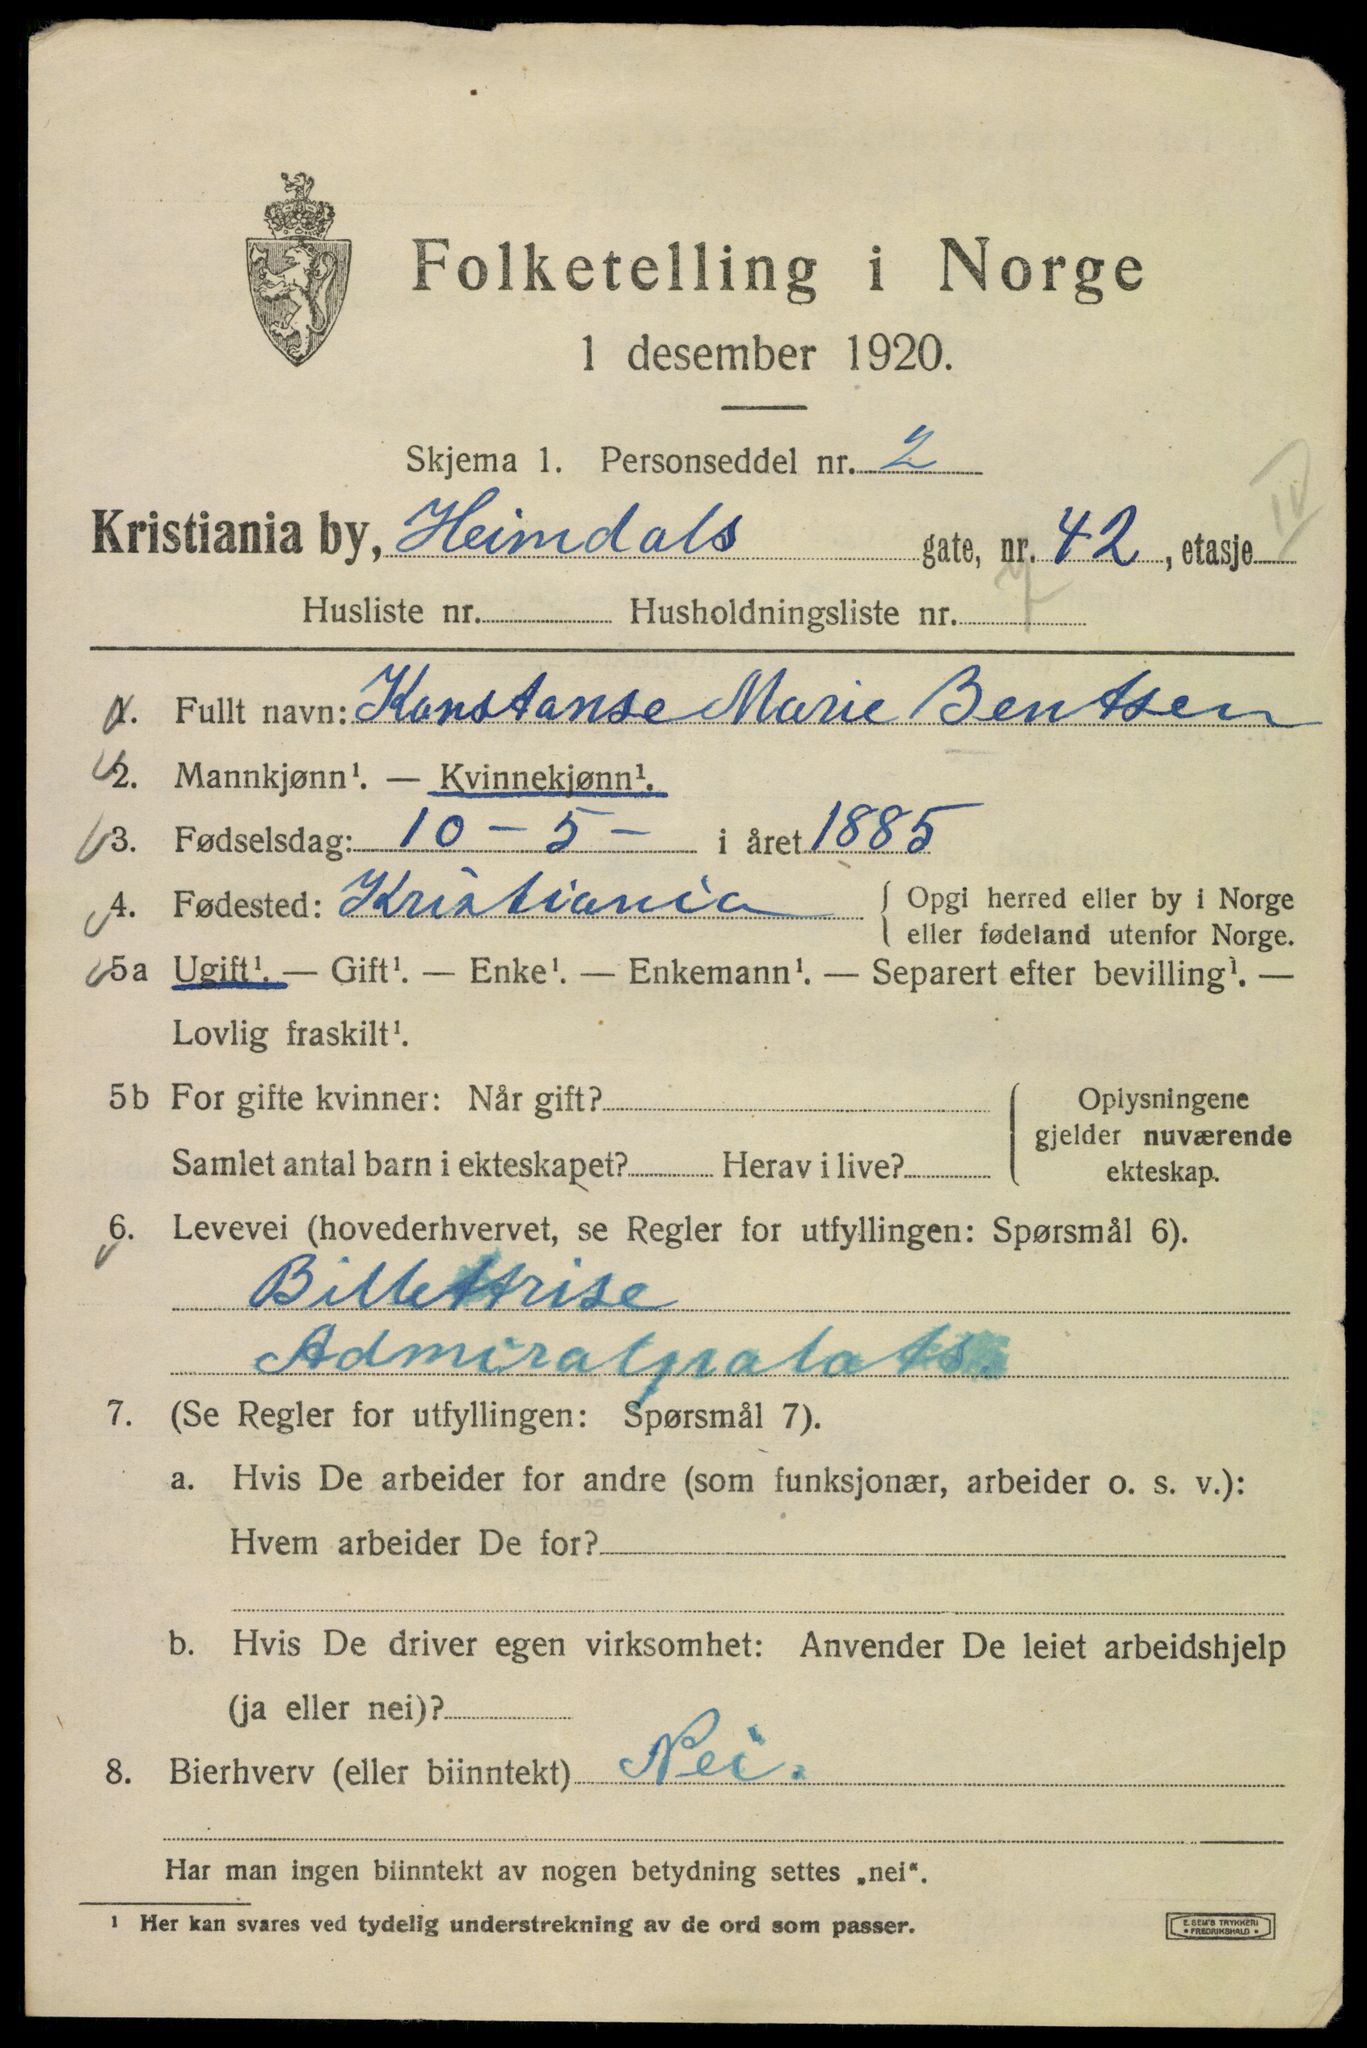 Folketelling i Norge
1 desember 1920.
Skjema 1. Personseddel nr. 2
Kristiania by, Heimdals gate, nr. 42, etasje IV
Husliste nr. Husholdningsliste nr. 7
1. Fullt navn: Konstanse Marie Bentsen
2. Mannkjønn¹. — Kvinnekjønn¹.
3. Fødselsdag: 10 – 5 – i året 1885
4. Fødested: Kristiania { Opgi herred eller by i Norge
eller fødeland utenfor Norge.
5a Ugift¹. — Gift¹. — Enke¹. — Enkemann¹. — Separert efter bevilling¹. —
Lovlig fraskilt¹.
5b For gifte kvinner: Når gift? Oplysningene
gjelder nuværende
Samlet antal barn i ekteskapet? Herav i live? ekteskap.
6. Levevei (hovederhvervet, se Regler for utfyllingen: Spørsmål 6).
Billettrise
Admiralpalats.
7. (Se Regler for utfyllingen: Spørsmål 7).
a. Hvis De arbeider for andre (som funksjonær, arbeider o. s. v.):
Hvem arbeider De for?
b. Hvis De driver egen virksomhet: Anvender De leiet arbeidshjelp
(ja eller nei)?
8. Bierhverv (eller biinntekt) Nei.
Har man ingen biinntekt av nogen betydning settes „nei“.
¹ Her kan svares ved tydelig understrekning av de ord som passer.
E. SEM'S TRYKKERI
* FREDRIKSHALD *